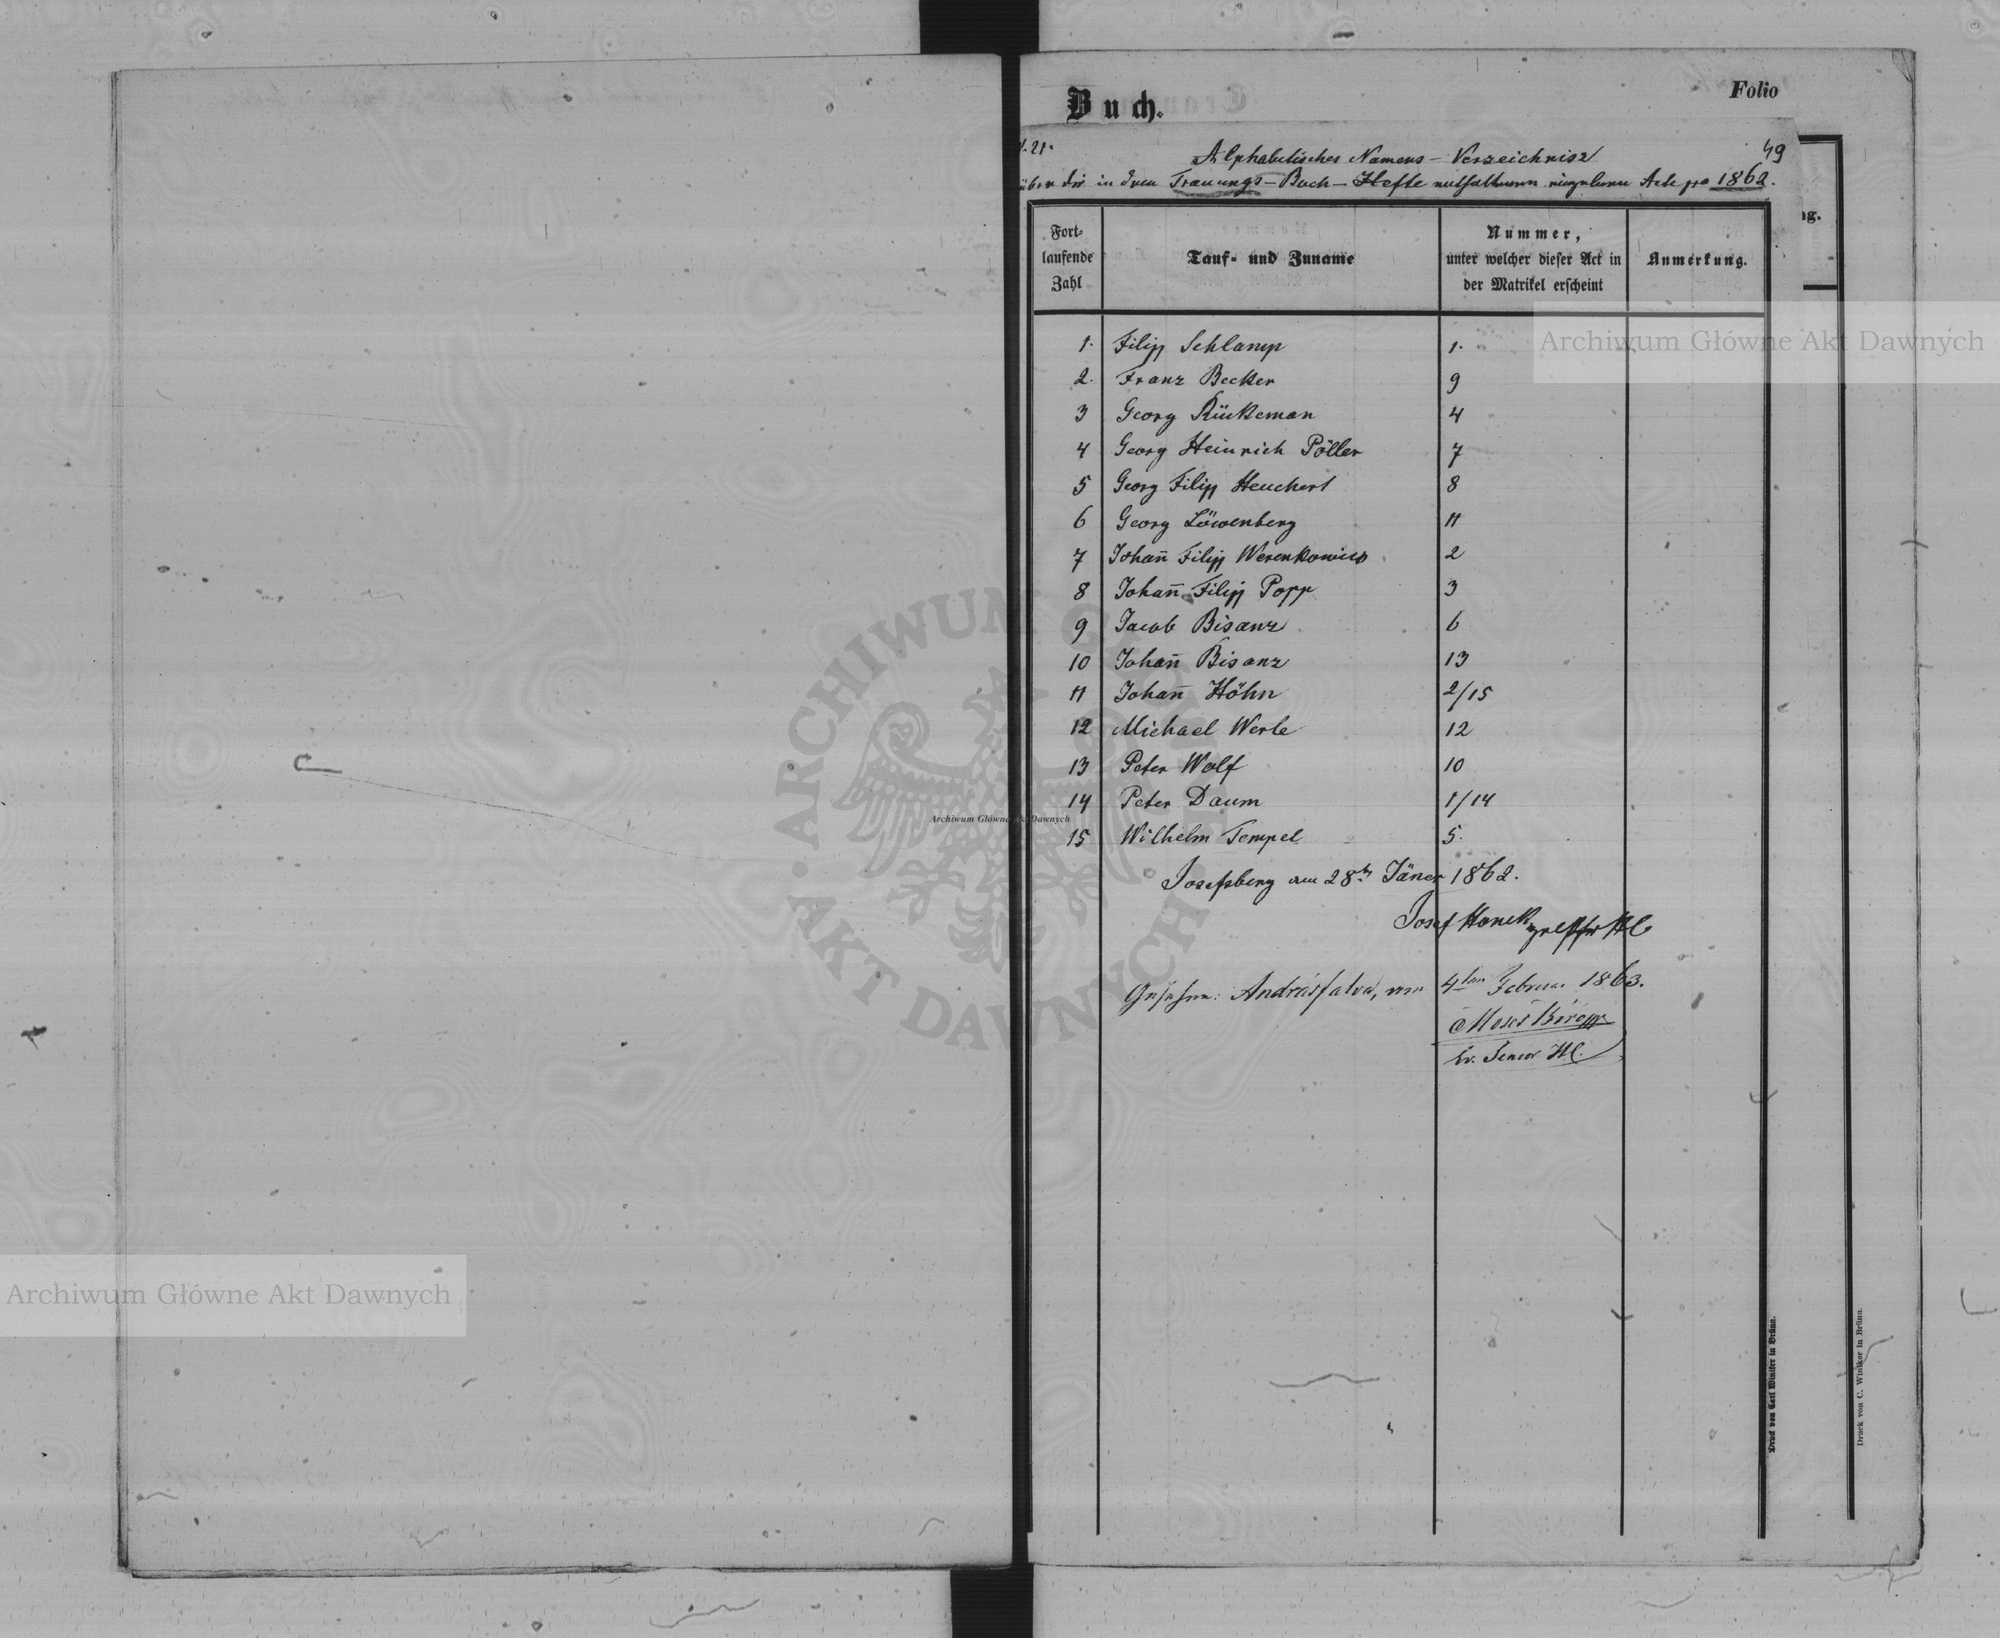 Buch.
Folio
N. 21.
49
Alphabetisches Namens-Verzeichniss
über die in dem Trauungs-Buch-Hefte enthaltenen einzelnen Acte pro 1862.
Fort-
laufende
Zahl
Tauf- und Zuname
Nummer,
unter welcher dieser Act in
der Matrikel erscheint
Anmerkung.
ng.
1. Filip Schlamp 1.
2. Franz Becker 9
3 Georg Rückeman 4
4 Georg Heinrich Pöller 7
5 Georg Filip Heuchert 8
6 Georg Löwenberg 11
7 Johañ Filip Werenkowicz 2
8 Johañ Filip Popp 3
9 Jacob Bisanz 6
10 Johañ Bisanz 13
11 Johañ Höhn 2/15
12 Michael Werle 12
13 Peter Wolf 10
14 Peter Daum 1/14
15 Wilhelm Tempel 5.
Josefsberg am 28t Jäner 1862.
Josef Hanek HC
Gesehen: Andrásfalva, am 4ten Februar 1863.
Moses Biró
Ev. Senior HC.
Druck von Carl Winiker in Brünn.
Druck von C. Winiker in Brünn.
Archiwum Główne Akt Dawnych
ARCHIWUM GŁÓWNE AKT DAWNYCH
Archiwum Główne Akt Dawnych
Archiwum Główne Akt Dawnych